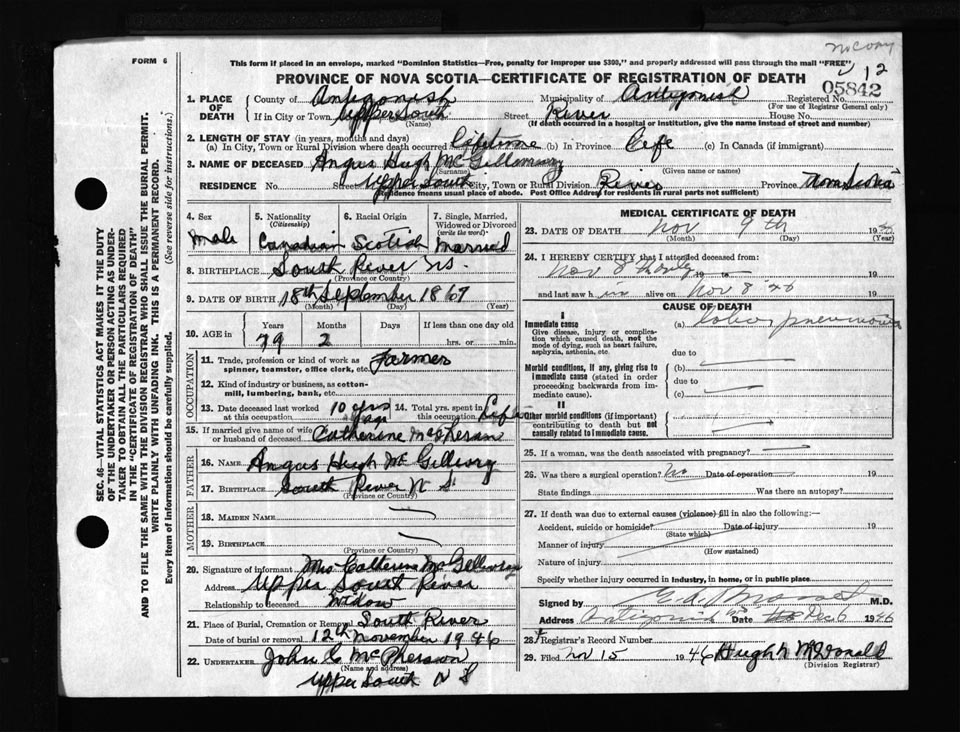 No Copy
12
FORM 6
This form if placed in an envelope, marked "Dominion Statistics—Free, penalty for improper use $300," and properly addressed will pass through the mail "FREE"
PROVINCE OF NOVA SCOTIA—CERTIFICATE OF REGISTRATION OF DEATH
05842
1. PLACE OF DEATH County of Antigonish Municipality of Antigonish Registered No.
(For use of Registrar General only)
If in City or Town Upper South Street River House No.
(Name) (If death occurred in a hospital or institution, give name instead of street and number)
2. LENGTH OF STAY (in years, months and days)
(a) In City, Town or Rural Division where death occurred Lifetime (b) In Province Life (c) In Canada (if immigrant)
3. NAME OF DECEASED Angus Hugh McGillivray
(Surname) (Given name or names)
RESIDENCE No. Street Upper South City, Town or Rural Division River Province Nova Scotia
(Residence means usual place of abode. Post Office Address for residents in rural parts not sufficient)
4. Sex 5. Nationality 6. Racial Origin 7. Single, Married, Widowed or Divorced
(Citizenship) (write the word)
Male Canadian Scotish Married
8. BIRTHPLACE South River N.S.
(Province or Country)
9. DATE OF BIRTH 18th September 1867
(Month) (Day) (Year)
10. AGE in Years Months Days If less than one day old
79 2 hrs. or min.
OCCUPATION
11. Trade, profession or kind of work as spinner, teamster, office clerk, etc. Farmer
12. Kind of industry or business, as cotton-mill, lumbering, bank, etc.
13. Date deceased last worked at this occupation 10 yrs ago 14. Total yrs. spent in this occupation Life
15. If married give name of wife or husband of deceased Catherine McPherson
FATHER
16. NAME Angus Hugh McGillivry
17. BIRTHPLACE South River N S.
(Province or Country)
MOTHER
18. MAIDEN NAME
19. BIRTHPLACE
(Province or Country)
20. Signature of informant Mrs Catherine McGillivray
Address Upper South River
Relationship to deceased Widow
21. Place of Burial, Cremation or Removal South River
Date of burial or removal 12th November 1946
22. UNDERTAKER John C McPherson
(Name and address)
Upper South N S
MEDICAL CERTIFICATE OF DEATH
23. DATE OF DEATH Nov 9th 19
(Month) (Day) (Year)
24. I HEREBY CERTIFY that I attended deceased from:
Nov 8th only 19 to
and last saw h im alive on Nov 8 '46 19
CAUSE OF DEATH
I
Immediate cause (a) Lobar pneumonia
Give disease, injury or complication which caused death, not the mode of dying, such as heart failure, asphyxia, asthenia, etc.
due to
Morbid conditions, if any, giving rise to immediate cause (stated in order proceeding backwards from immediate cause). (b)
due to
(c)
II
Other morbid conditions (if important) contributing to death but not causally related to immediate cause.
25. If a woman, was the death associated with pregnancy?
26. Was there a surgical operation? No Date of operation 19
State findings Was there an autopsy?
27. If death was due to external causes (violence) fill in also the following:—
Accident, suicide or homicide? Date of injury 19
(State which)
Manner of injury
(How sustained)
Nature of injury
Specify whether injury occurred in industry, in home, or in public place
Signed by M.D.
Address Antigonish NS Date Dec 6 1946
28. Registrar's Record Number
29. Filed Nov 15 1946 Hugh McDonald
(Division Registrar)
SEC. 46—VITAL STATISTICS ACT MAKES IT THE DUTY
OF THE UNDERTAKER OR PERSON ACTING AS UNDER-
TAKER TO OBTAIN ALL THE PARTICULARS REQUIRED
IN THE "CERTIFICATE OF REGISTRATION OF DEATH"
AND TO FILE THE SAME WITH THE DIVISION REGISTRAR WHO SHALL ISSUE THE BURIAL PERMIT.
WRITE PLAINLY WITH UNFADING INK. THIS IS A PERMANENT RECORD.
Every item of information should be carefully supplied. (See reverse side for instructions.)